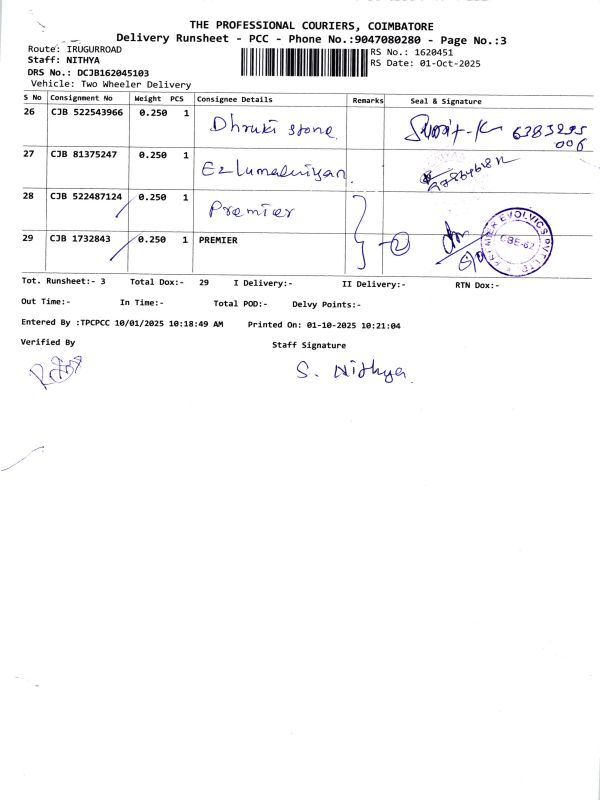 THE PROFESSIONAL COURIERS, COIMBATORE
Delivery Runsheet - PCC - Phone No.:9047080280 - Page No.:3
Route: IRUGURROAD RS No.: 1620451
Staff: NITHYA RS Date: 01-Oct-2025
DRS No.: DCJB162045103
Vehicle: Two Wheeler Delivery
S No Consignment No Weight PCS Consignee Details Remarks Seal & Signature
26 CJB 522543966 0.250 1 Dhruki stone 6383295
006
27 CJB 81375247 0.250 1
28 CJB 522487124 0.250 1 Premier
29 CJB 1732843 0.250 1 PREMIER 2
PREMIER EVOLVICS PVT LTD
CBE-62
Tot. Runsheet:- 3 Total Dox:- 29 I Delivery:- II Delivery:- RTN Dox:-
Out Time:- In Time:- Total POD:- Delvy Points:-
Entered By :TPCPCC 10/01/2025 10:18:49 AM Printed On: 01-10-2025 10:21:04
Verified By Staff Signature
S. Nithya.